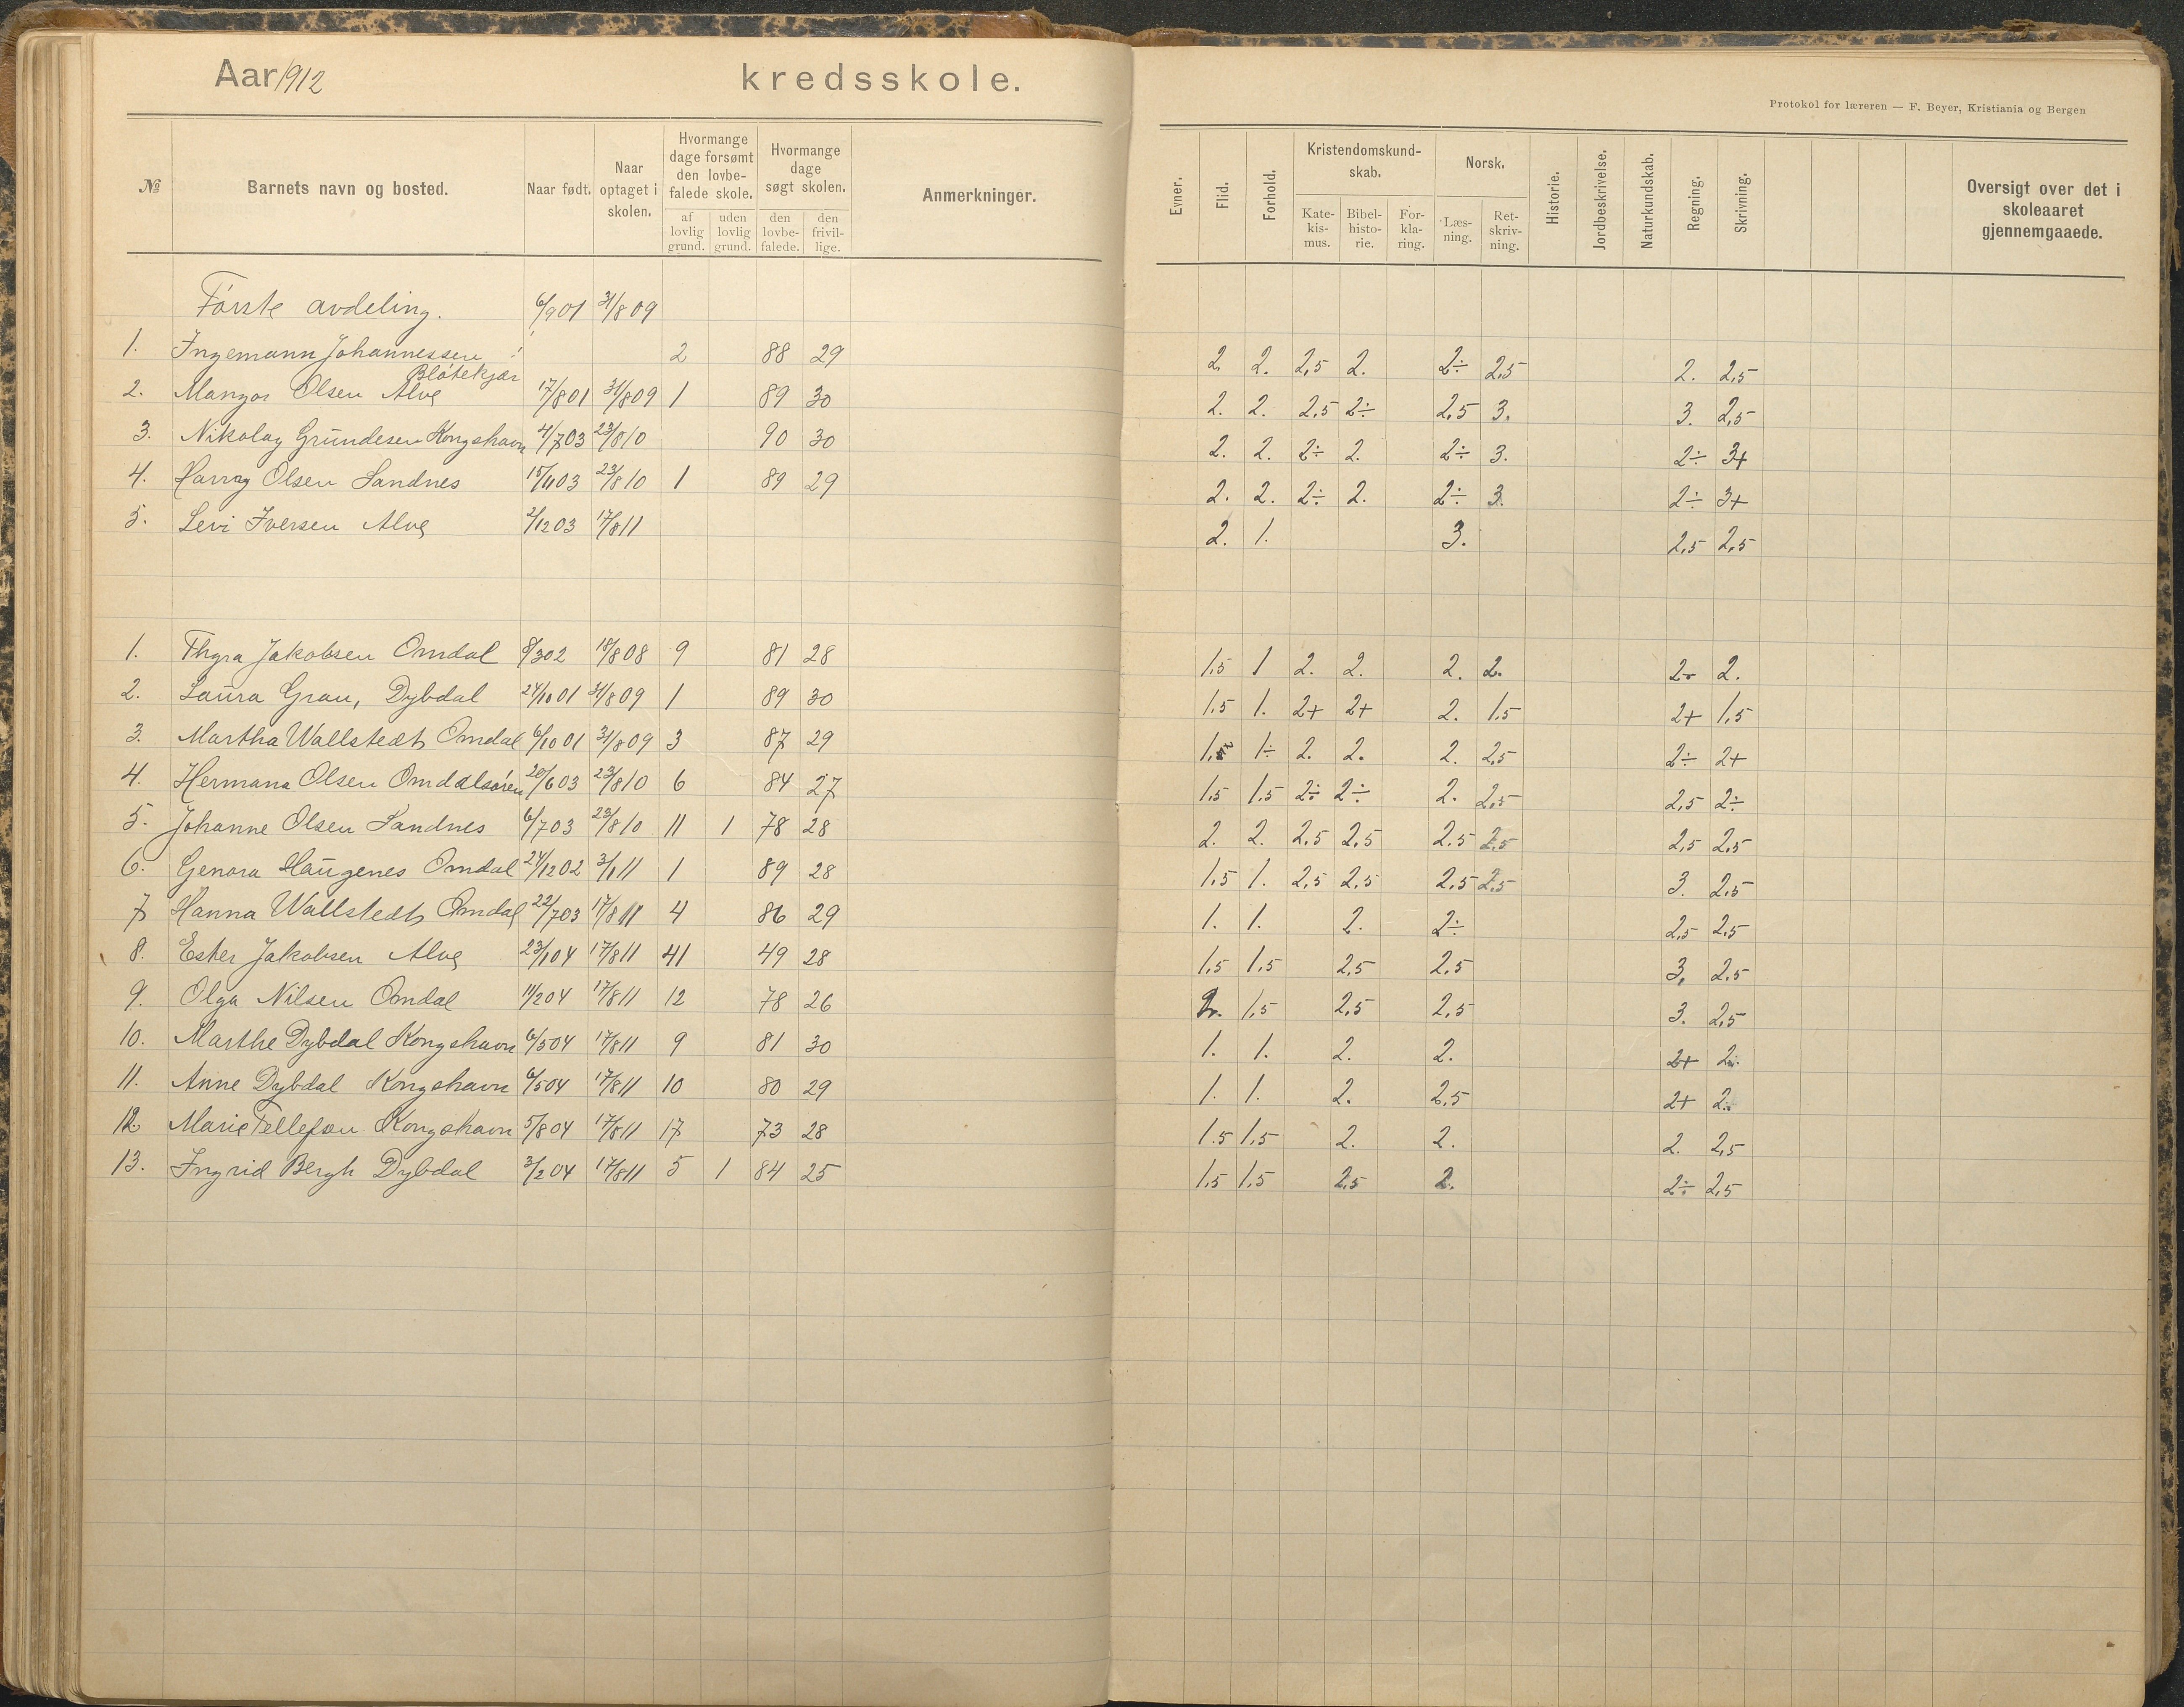 Aar 1912 kredsskole.
Protokol for læreren — F. Beyer, Kristiania og Bergen
№ Barnets navn og bosted. Naar født. Naar optaget i skolen. Hvormange dage forsømt den lovbefalede skole. af lovlig grund. uden lovlig grund. Hvormange dage søgt skolen. den lovbefalede. den frivillige. Anmerkninger. Evner. Flid. Forhold. Kristendomskundskab. Katekismus. Bibelhistorie. Forklaring. Norsk. Læsning. Retskrivning. Historie. Jordbeskrivelse. Naturkundskab. Regning. Skrivning. Oversigt over det i skoleaaret gjennemgaaede.
Første avdeling. 6/9 01 31/8 09
1. Ingemann Johannessen 2 88 29 2. 2. 2,5 2. 2÷ 2,5 2. 2,5
Bløtekjær
2. Mangor Olsen Alve 17/8 01 31/8 09 1 89 30 2. 2. 2,5 2÷ 2,5 3. 3. 2,5
3. Nikolay Grundesen Kongshavn 4/7 03 23/8 10 90 30 2. 2. 2÷ 2. 2÷ 3. 2÷ 3+
4. Harry Olsen Sandnes 15/11 03 23/8 10 1 89 29 2. 2. 2÷ 2. 2÷ 3. 2÷ 3+
5. Levi Iversen Alve 2/12 03 17/8 11 2. 1. 3. 2,5 2,5
1. Thyra Jakobsen Omdal 8/3 02 18/8 08 9 81 28 1,5 1 2. 2. 2. 2. 2. 2.
2. Laura Grau, Dybdal 24/10 01 31/8 09 1 89 30 1,5 1. 2+ 2+ 2. 1,5 2+ 1,5
3. Martha Wallstedt Omdal 6/10 01 31/8 09 3 87 29 1,5 1÷ 2. 2. 2. 2,5 2÷ 2+
4. Hermana Olsen Omdalsøren 20/6 03 23/8 10 6 84 27 1,5 1,5 2÷ 2÷ 2. 2,5 2,5 2÷
5. Johanne Olsen Sandnes 6/7 03 23/8 10 11 1 78 28 2. 2. 2,5 2,5 2.5 2,5 2,5 2,5
6. Genora Haugenes Omdal 24/12 02 3/1 11 1 89 28 1,5 1. 2,5 2,5 2,5 2,5 3. 2,5
7 Hanna Wallstedt Omdal 22/7 03 17/8 11 4 86 29 1. 1. 2. 2÷ 2,5 2,5
8. Ester Jakobsen Alve 23/1 04 17/8 11 41 49 28 1,5 1,5 2,5 2,5 3, 2,5
9. Olga Nilsen Omdal 11/2 04 17/8 11 12 78 26 2. 1,5 2,5 2,5 3. 2,5
10. Marthe Dybdal Kongshavn 6/5 04 17/8 11 9 81 30 1. 1. 2. 2. 2+ 2÷
11. Anne Dybdal Kongshavn 6/5 04 17/8 11 10 80 29 1. 1. 2. 2,5 2+ 2÷
12. Marie Tellefsen Kongshavn 5/8 04 17/8 11 17 73 28 1.5 1,5 2. 2. 2. 2,5
13. Ingrid Bergh Dybdal 3/2 04 17/8 11 5 1 84 25 1,5 1,5 2,5 2. 2÷ 2,5